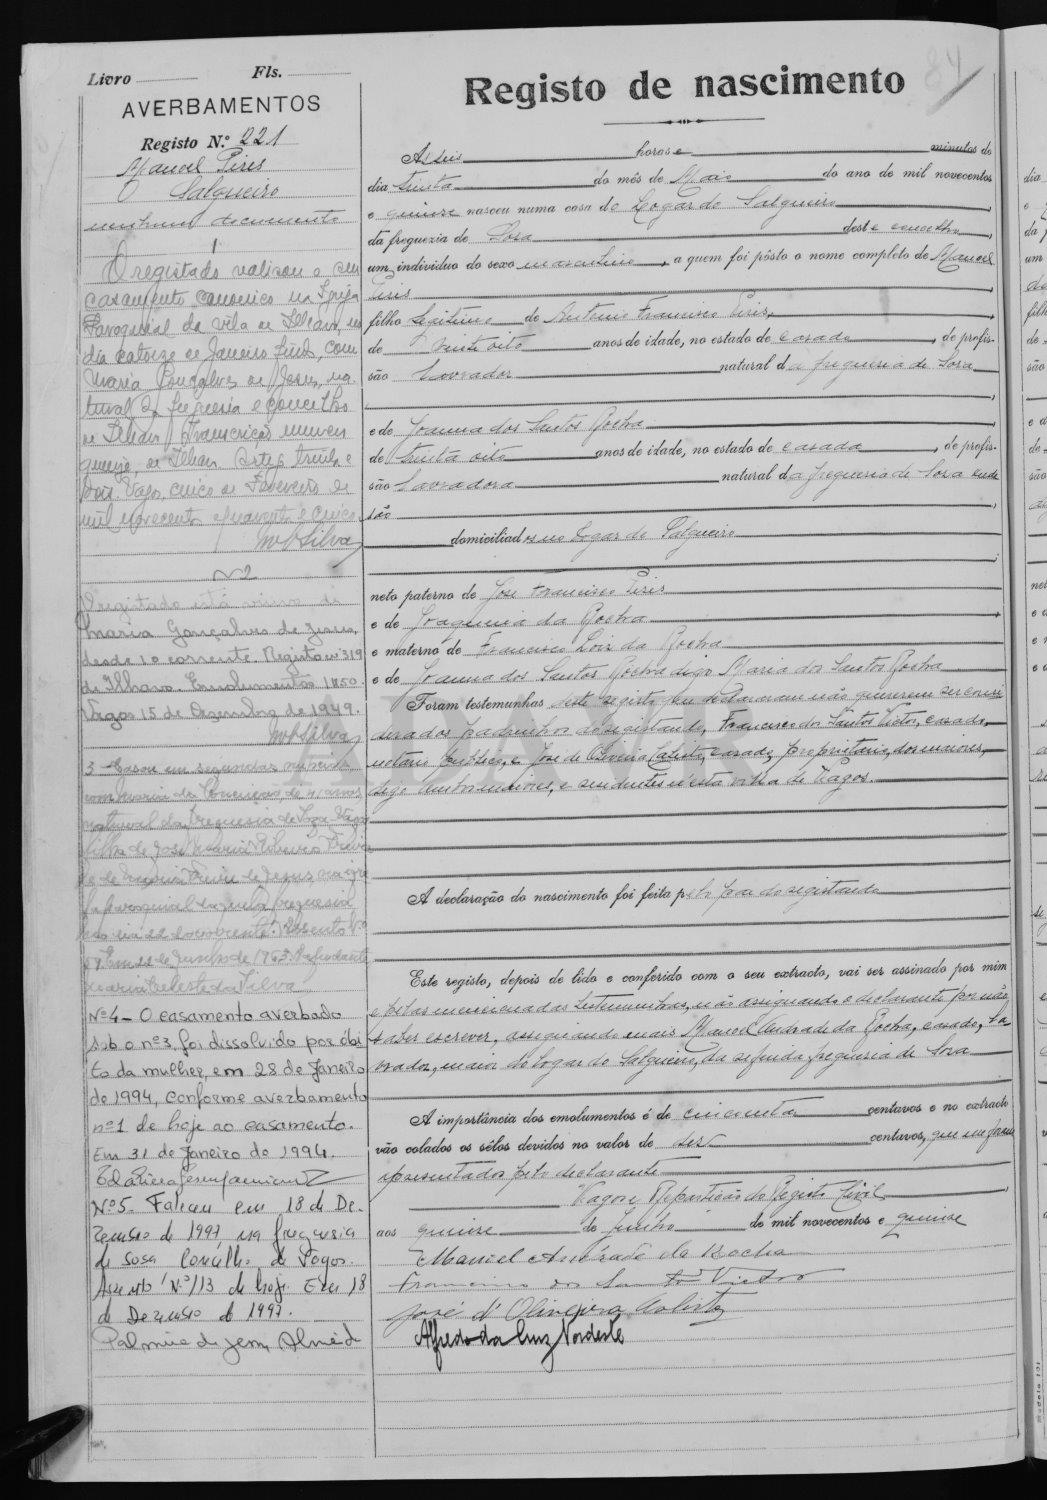 Livro Fls.
AVERBAMENTOS
Registo N.º 221
Manoel Pires
Salgueiro
nenhum documento
1
O registado realisou o seu
casamento canonico na Igreja
Paroquial da vila de Ilhavo, no
dia catorze de Janeiro findo, com
Maria Gonçalves de Jesus, na-
tural da freguesia e concelho
de Ilhavo. Transcrição numero
quinze, de Ilhavo. trinta e
Vagos, cinco de Fevereiro de
mil novecentos e quarenta e cinco.
Silva
Nº2
O registado está viuvo de
Maria Gonçalves de Jesus,
desde 10 corrente. Registo nº 319
de Ilhavo. Emolumentos 1$50.
Vagos 15 de Dezembro de 1949.
Silva
3 - Casou em segundas nupcias
com Maria da Conceição, de 41 anos,
natural da freguesia de Soza - Vagos
filha de José Maria
e de Maria de Jesus na igre-
ja paroquial daquela freguesia
no dia 22 do corrente. Assento nº
Em de Junho de 1963. O ajudante
Maria Celeste da Silva
Nº4 - O casamento averbado
sob o nº3, foi dissolvido por óbi-
to da mulher, em 28 de Janeiro
de 1994, conforme averbamento
nº1 de hoje ao casamento.
Em 31 de Janeiro de 1994.
Nº5 - Faleceu em 18 de De-
zembro de 1997 na freguesia
de Sosa Concelho de Vagos.
Assento Nº 113 de hoje. Em 18
de Dezembro de 1997.
Palmira de Jesus Almeida
84
Registo de nascimento
Ás seis horas e minutos do
dia trinta do mês de Maio do ano de mil novecentos
e quinze nasceu numa casa do Logar do Salgueiro,
da freguezia de Sosa deste concelho,
um individuo do sexo masculino, a quem foi pôsto o nome completo de Manoel
Pires
filho legitimo de Antonio Francisco Pires,
de vinte oito anos de idade, no estado de casado, de profis-
são lavrador natural da freguesia de Sosa
e de Joanna dos Santos Rocha
de trinta oito anos de idade, no estado de casada, de profis-
são lavradora natural da freguesia de Sosa onde
são
domiciliados no Logar do Salgueiro
neto paterno de José Francisco Pires
e de Joaquina da Rocha
e materno de Francisco Luiz da Rocha
e de Joanna dos Santos Rocha digo Maria dos Santos Rocha
Foram testemunhas deste registo que declararam não quererem ser consi-
derados padrinhos do registando, Francisco dos Santos Victor, casado,
notario publico, e José de Oliveira Calisto, casado, proprietario, dos maiores,
digo ambos maiores, e residentes n'esta vila de Vagos.
A declaração do nascimento foi feita pelo pae do registando
Este registo, depois de lido e conferido com o seu extracto, vai ser assinado por mim
e pelas mencionadas testemunhas, não assignando o declarante por não
saber escrever, assignando mais Manoel Andrade da Rocha, casado, la-
vrador, maior do logar do Salgueiro, da referida freguesia de Sosa
A importância dos emolumentos é de cincoenta centavos e no extracto
vão colados os sêlos devidos no valor de dez centavos, que me foram
apresentados pelo declarante
Vagos, Repartição do Registo Civil
aos quinze de Junho de mil novecentos e quinze
Manuel Andrade da Rocha
Francisco dos Santos Victor
José d'Oliveira Calisto
Alfredo da Cruz Nordeste